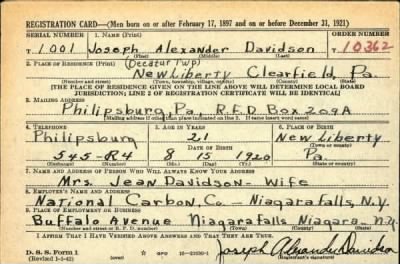 REGISTRATION CARD—(Men born on or after February 17, 1897 and on or before December 31, 1921)
SERIAL NUMBER 1. NAME (Print) ORDER NUMBER
T 1001 Joseph Alexander Davidson T 10362
(First) (Middle) (Last)
2. PLACE OF RESIDENCE (Print) (Decatur Twp)
New Liberty Clearfield, Pa.
(Number and street) (Town, township, village, or city) (County) (State)
[THE PLACE OF RESIDENCE GIVEN ON THE LINE ABOVE WILL DETERMINE LOCAL BOARD
JURISDICTION; LINE 2 OF REGISTRATION CERTIFICATE WILL BE IDENTICAL]
3. MAILING ADDRESS
Philipsburg, Pa, R.F.D Box 209A
[Mailing address if other than place indicated on line 2. If same insert word same]
4. TELEPHONE 5. AGE IN YEARS 6. PLACE OF BIRTH
Philipsburg 21 New Liberty
DATE OF BIRTH (Town or county)
545-R4 8 15 1920 Pa.
(Mo.) (Day) (Yr.) (State or country)
7. NAME AND ADDRESS OF PERSON WHO WILL ALWAYS KNOW YOUR ADDRESS
Mrs. Jean Davidson - Wife
8. EMPLOYER'S NAME AND ADDRESS
National Carbon, Co — Niagara falls, N.Y.
9. PLACE OF EMPLOYMENT OR BUSINESS
Buffalo Avenue Niagara falls Niagara N.Y.
(Number and street or R. F. D. number) (Town) (County) (State)
I AFFIRM THAT I HAVE VERIFIED ABOVE ANSWERS AND THAT THEY ARE TRUE.
D. S. S. Form 1
(Revised 1-1-42) (over) GPO Joseph Alexander Davidson